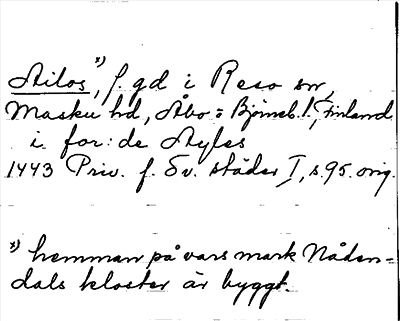 Ailos *), f. gd i Reso sn,
Masku hd, Åbo = Björneb. l., Finland
i for: de Ayles
1443 Priv. f. Sv. städer I, s. 95. orig.
*) hemman på vars mark Nåden-
dals kloster är byggt.